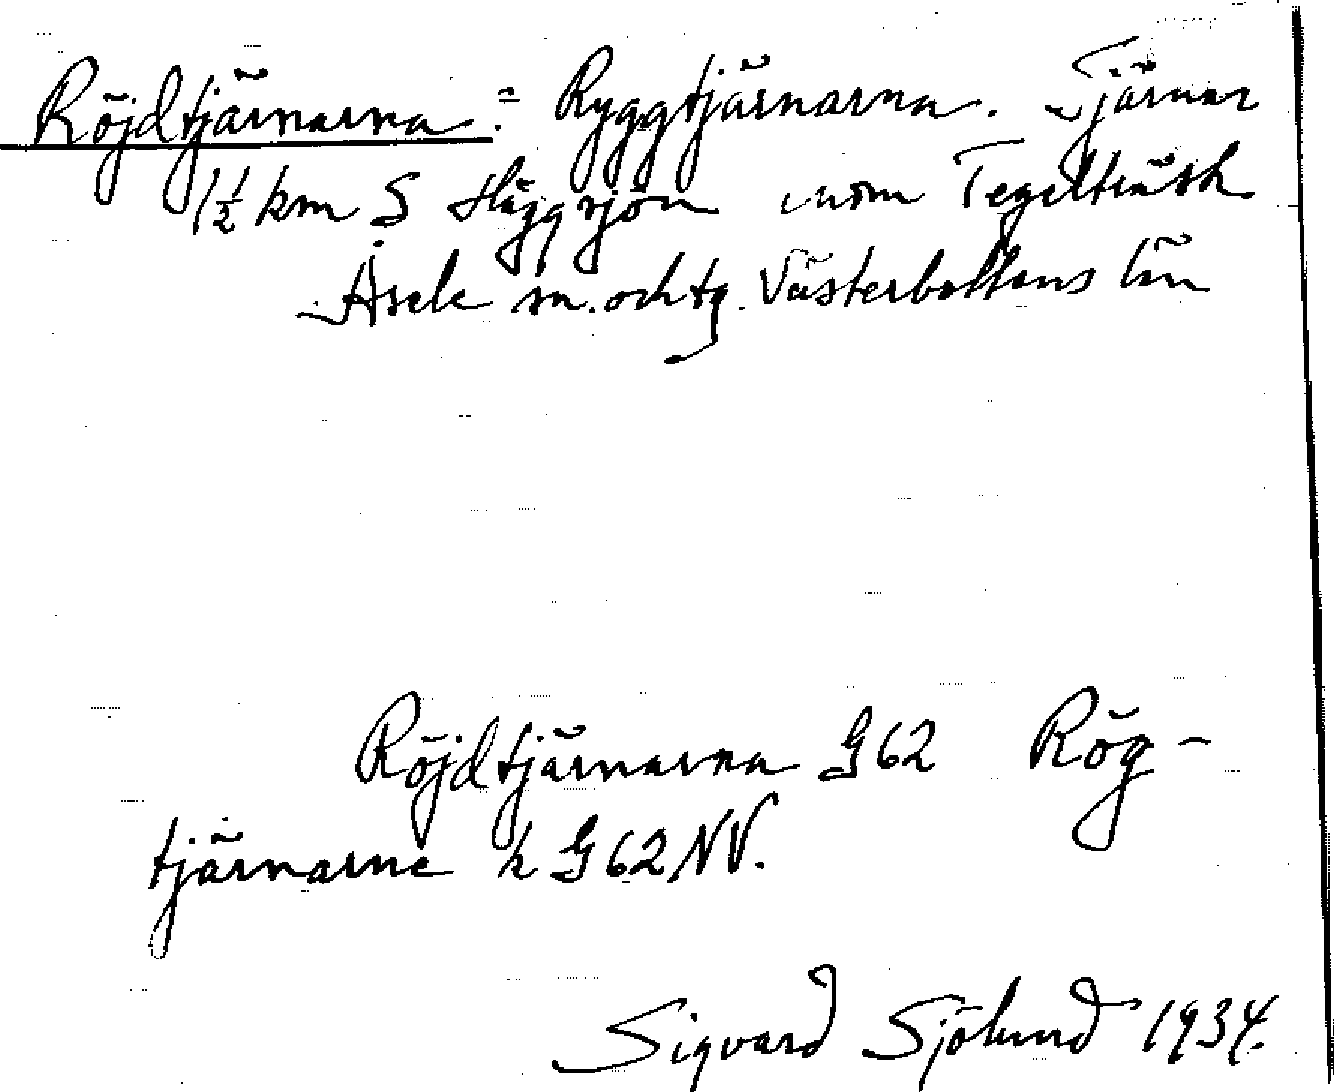 Röjdtjärnarna = Ryggtjärnarna. Tjärnar
1½ km S Häggsjön inom Tegelträsk
Åsele sn. och tg. Västerbottens län
Röjdtjärnarna G62 Rög-
tjärnarne k G62NV.
Sigvard Sjölund 1934.